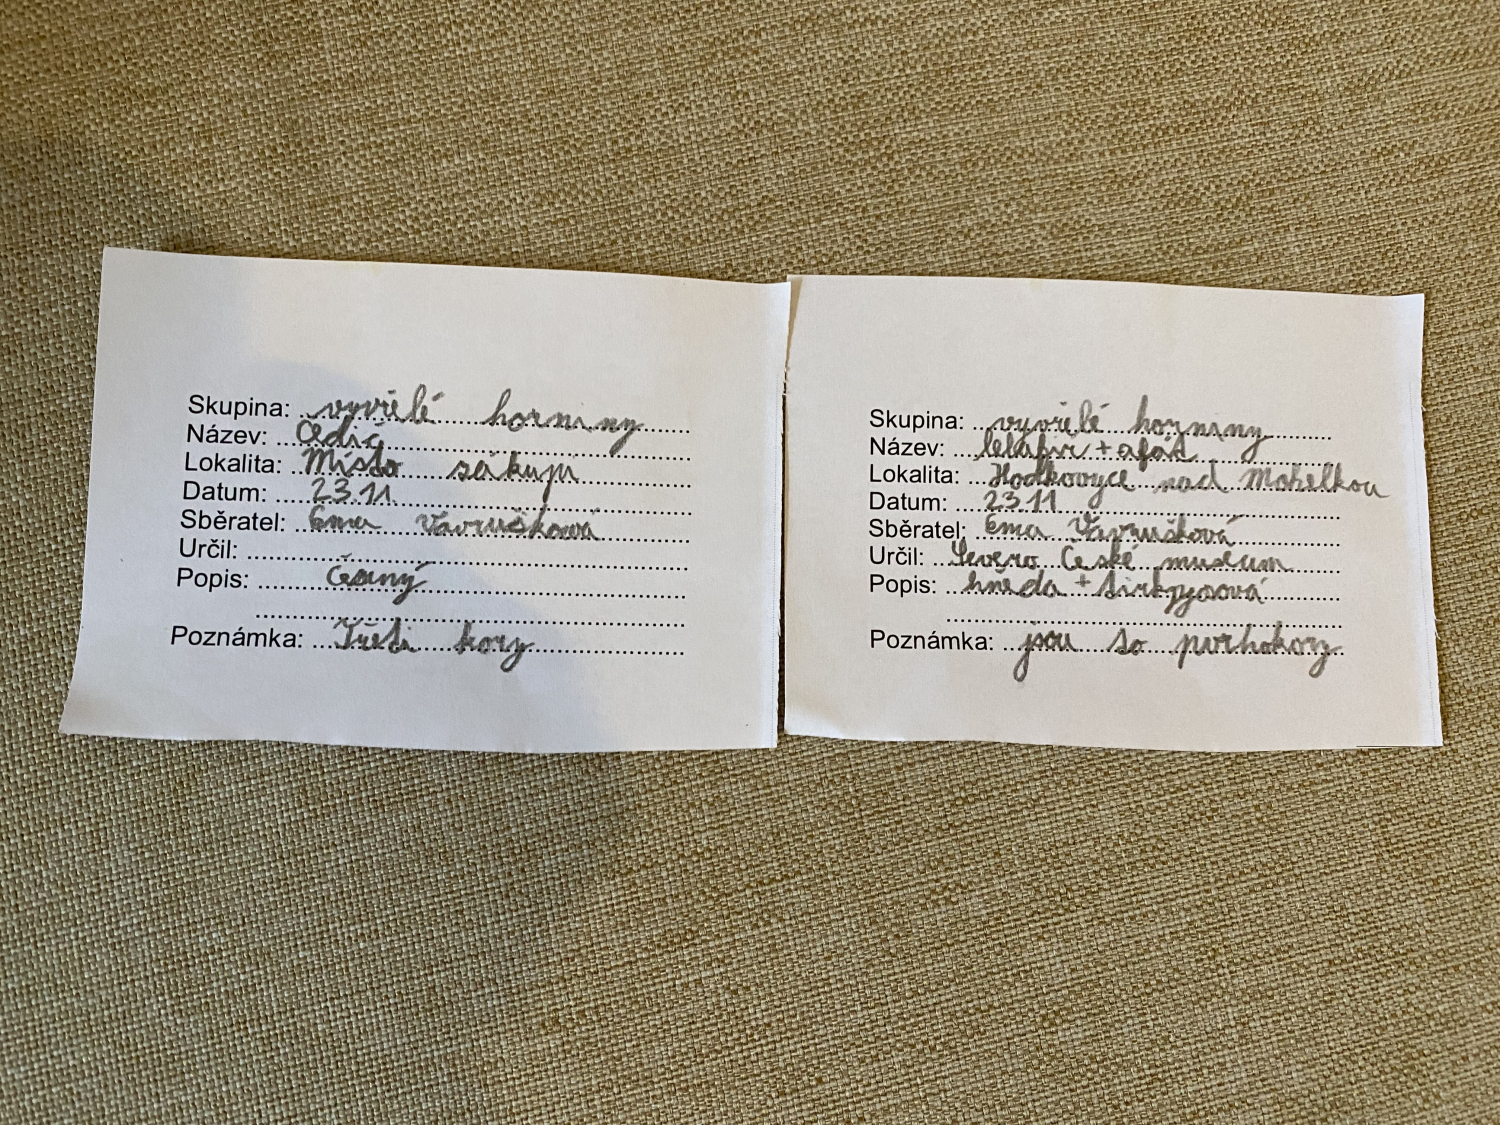 Skupina: vyvřelé horniny
Název: Čedič
Lokalita: Místo zákupu
Datum: 23.11.
Sběratel: Ema Vavrušková
Určil:
Popis: Černý
Poznámka: Třetí hory
Skupina: vyvřelé horniny
Název: + afád
Lokalita: Hodkovyce nad Mohelkou
Datum: 23.11
Sběratel: Ema Vavrušková
Určil: Severo České museum
Popis: hněda +
Poznámka: jsou to prvohory